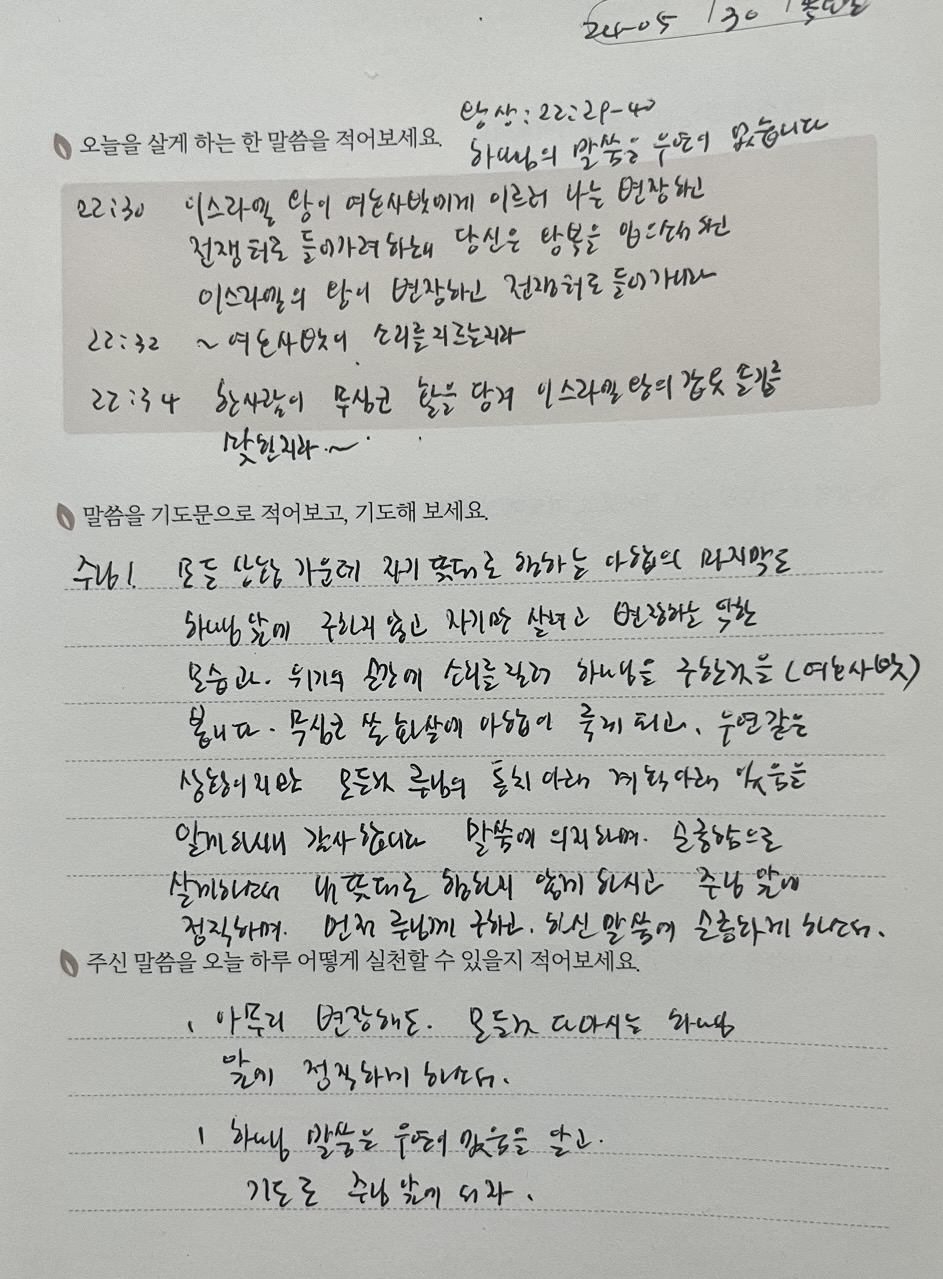 24-05 / 30 / 목요일
왕상:22:29-40
오늘을 살게 하는 한 말씀을 적어보세요.
하나님의 말씀은 우연이 없습니다
22:30 이스라엘 왕이 여호사밧에게 이르러 나는 변장하고
전쟁터로 들어가려하는데 당신은 왕복을 입으소서 하고
이스라엘의 왕이 변장하고 전쟁터로 들어가니라
22:32 ~여호사밧이 소리를지르는지라
22:34 한사람이 무심코 활을 당겨 이스라엘 왕의 갑옷 솔기를
맞힌지라~
말씀을 기도문으로 적어보고, 기도해 보세요.
주님! 모든 상황 가운데 자기 뜻대로 행하는 아합의 마지막도
하나님 앞에 구하지 않고 자기만 살려고 변장하는 악한
모습과. 위기의 순간에 소리를 질러 하나님을 구한것을 (여호사밧)
봅니다. 무심코 쏠 화살에 아합이 죽게 되고, 우연같은
상황이지만 모든것 주님의 통치 아래 계획아래 있음을
알게하시매 감사합니다 말씀에 의지하며. 순종함으로
살게하소서 내뜻대로 행하지 않게 하시고 주님 앞에
정직하며. 먼저 주님께 구하고. 하신 말씀에 순종하게 하소서.
주신 말씀을 오늘 하루 어떻게 실천할 수 있을지 적어보세요.
1 아무리 변장해도. 모든것 다아시는 하나님
앞에 정직하게 하소서.
1 하나님 말씀은 우연이 없음을 알고.
기도로 주님 앞에 서자.